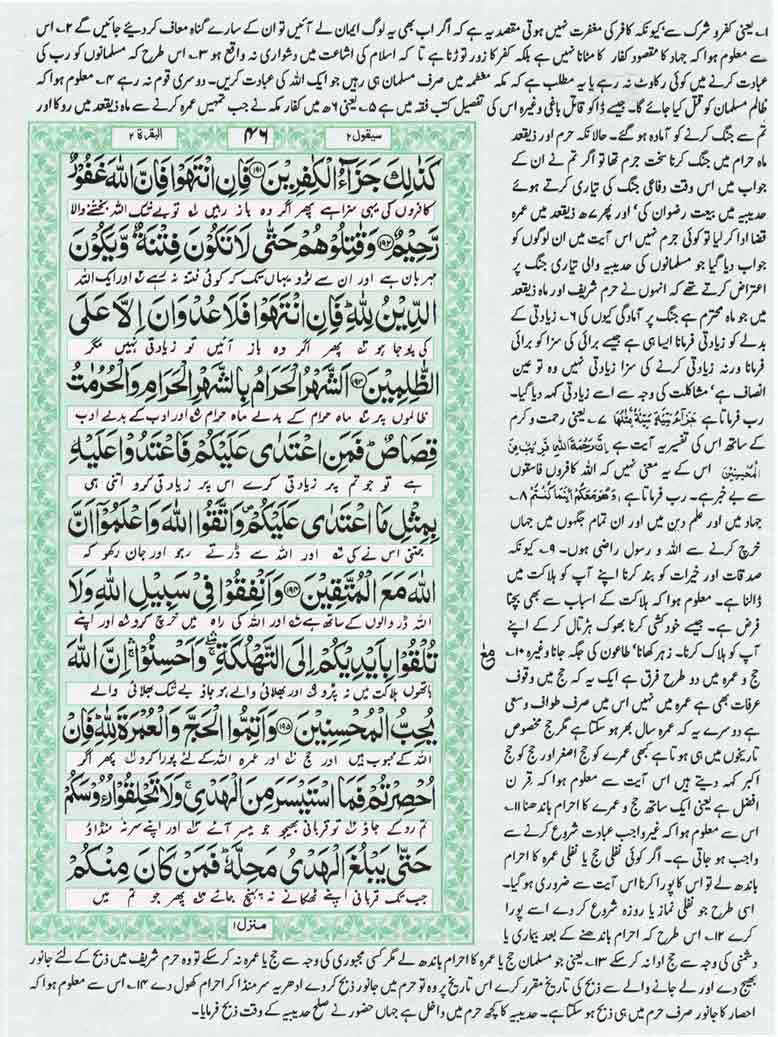 ۱۔ یعنی کفر و شرک سے، کیونکہ کافر کی مغفرت نہیں ہوتی مقصد یہ ہے کہ اگر اب بھی یہ لوگ ایمان لے آئیں تو ان کے سارے گناہ معاف کر دیئے جائیں گے ۲۔ اس
سے معلوم ہوا کہ جہاد کا مقصود کفار کا مٹانا نہیں ہے بلکہ کفر کا زور توڑنا ہے تا کہ اسلام کی اشاعت میں دشواری نہ واقع ہو ۳۔ اس طرح کہ مسلمانوں کو رب کی
عبادت کرنے میں کوئی رکاوٹ نہ رہے یا یہ مطلب ہے کہ مکہ معظمہ میں صرف مسلمان ہی رہیں جو ایک اللہ کی عبادت کریں۔ دوسری قوم نہ رہے ۴۔ معلوم ہوا کہ
ظالم مسلمان کو قتل کیا جائے گا۔ جیسے ڈاکو قاتل باغی وغیرہ اس کی تفصیل کتب فقہ میں ہے ۵۔ یعنی ۶ھ میں کفار مکہ نے جب تمہیں عمرہ کرنے سے ماہ ذیقعد میں روکا اور
تم سے جنگ کرنے کو آمادہ ہو گئے۔ حالانکہ حرم اور ذیقعد
ماہ حرام میں جنگ کرنا سخت جرم تھا تو اگر تم نے ان کے
جواب میں اس وقت دفاعی جنگ کی تیاری کرتے ہوئے
حدیبیہ میں بیعت رضوان کی، اور پھر ۷ھ ذیقعد میں عمرہ
قضا ادا کر لیا تو کوئی جرم نہیں اس آیت میں ان لوگوں کو
جواب دیا گیا جو مسلمانوں کی حدیبیہ والی تیاری جنگ پر
اعتراض کرتے تھے کہ انہوں نے حرم شریف اور ماہ ذیقعد
میں جو ماہ محترم ہے جنگ پر آمادگی کیوں کی ۶۔ زیادتی کے
بدلے کو زیادتی فرمانا ایسا ہی ہے جیسے برائی کی سزا کو برائی
فرمانا ورنہ زیادتی کرنے کی سزا زیادتی نہیں وہ تو عین
انصاف ہے، مشاکلت کی وجہ سے اسے زیادتی کہہ دیا گیا۔
رب فرماتا ہے جَزَآءُ سَيِّئَةٍ سَيِّئَةٌ مِّثْلُهَا ۷۔ یعنی رحمت و کرم
کے ساتھ اس کی تفسیر یہ آیت ہے اِنَّ رَحْمَةَ اللّٰهِ قَرِيْبٌ مِّنَ
الْمُحْسِنِيْنَ اس کے یہ معنی نہیں کہ اللہ کافروں فاسقوں
سے بے خبر ہے۔ رب فرماتا ہے، وَهُوَ مَعَكُمْ اَيْنَمَا كُنْتُمْ ۸۔
جہاد میں اور علم دین میں اور ان تمام جگہوں میں جہاں
خرچ کرنے سے اللہ و رسول راضی ہوں۔ ۹۔ کیونکہ
صدقات اور خیرات کو بند کرنا اپنے آپ کو ہلاکت میں
ڈالنا ہے۔ معلوم ہوا کہ ہلاکت کے اسباب سے بھی بچنا
فرض ہے۔ جیسے خودکشی کرنا بھوک ہڑتال کر کے اپنے
آپ کو ہلاک کرنا۔ زہر کھانا، طاعون کی جگہ جانا وغیرہ ۱۰۔
حج و عمرہ میں دو طرح فرق ہے ایک یہ کہ حج میں وقوف
عرفات بھی ہے عمرہ میں نہیں اس میں صرف طواف و سعی
ہے دوسرے یہ کہ عمرہ سال بھر ہو سکتا ہے مگر حج مخصوص
تاریخوں میں ہی ہوتا ہے کبھی عمرے کو حج اصغر اور حج کو حج
اکبر کہہ دیتے ہیں اس آیت سے معلوم ہوا کہ قرن
افضل ہے یعنی ایک ساتھ حج و عمرے کا احرام باندھنا ۱۱۔
اس سے معلوم ہوا کہ غیر واجب عبادت شروع کرنے سے
واجب ہو جاتی ہے۔ اگر کوئی نفلی حج یا نفلی عمرہ کا احرام
باندھ لے تو اس کا پورا کرنا اس آیت سے ضروری ہو گیا۔
اسی طرح جو نفلی نماز یا روزہ شروع کر دے اسے پورا
کرے ۱۲۔ اس طرح کہ احرام باندھنے کے بعد بیماری یا
سیقول ۲ ۴۶ البقرۃ ۲
كَذٰلِكَ جَزَآءُ الْكٰفِرِيْنَ ۝۱۹۱ فَاِنِ انْتَهَوْا فَاِنَّ اللّٰهَ غَفُوْرٌ
کافروں کی یہی سزا ہے پھر اگر وہ باز رہیں تو بے شک اللہ بخشنے والا
رَّحِيْمٌ ۝۱۹۲ وَقٰتِلُوْهُمْ حَتّٰى لَا تَكُوْنَ فِتْنَةٌ وَّيَكُوْنَ
مہربان ہے اور ان سے لڑو یہاں تک کہ کوئی فتنہ نہ رہے اور ایک اللہ
الدِّيْنُ لِلّٰهِ ؕ فَاِنِ انْتَهَوْا فَلَا عُدْوَانَ اِلَّا عَلَى
کی پوجا ہو پھر اگر وہ باز آئیں تو زیادتی نہیں مگر
الظّٰلِمِيْنَ ۝۱۹۳ اَلشَّهْرُ الْحَرَامُ بِالشَّهْرِ الْحَرَامِ وَالْحُرُمٰتُ
ظالموں پر ماہ حرام کے بدلے ماہ حرام اور ادب کے بدلے ادب
قِصَاصٌ ؕ فَمَنِ اعْتَدٰى عَلَيْكُمْ فَاعْتَدُوْا عَلَيْهِ
ہے تو جو تم پر زیادتی کرے اس پر زیادتی کرو اتنی ہی
بِمِثْلِ مَا اعْتَدٰى عَلَيْكُمْ ۪ وَاتَّقُوا اللّٰهَ وَاعْلَمُوْۤا اَنَّ
جتنی اس نے کی اور اللہ سے ڈرتے رہو اور جان رکھو کہ
اللّٰهَ مَعَ الْمُتَّقِيْنَ ۝۱۹۴ وَاَنْفِقُوْا فِيْ سَبِيْلِ اللّٰهِ وَلَا
اللہ ڈر والوں کے ساتھ ہے اور اللہ کی راہ میں خرچ کرو اور اپنے
تُلْقُوْا بِاَيْدِيْكُمْ اِلَى التَّهْلُكَةِ ۛۖ وَاَحْسِنُوْا ۛۚ اِنَّ اللّٰهَ
ہاتھوں ہلاکت میں نہ پڑو اور بھلائی والے ہو جاؤ بے شک بھلائی والے
يُحِبُّ الْمُحْسِنِيْنَ ۝۱۹۵ وَاَتِمُّوا الْحَجَّ وَالْعُمْرَةَ لِلّٰهِ ؕ فَاِنْ
اللہ کے محبوب ہیں اور حج اور عمرہ اللہ کے لئے پورا کرو پھر اگر
اُحْصِرْتُمْ فَمَا اسْتَيْسَرَ مِنَ الْهَدْيِ ۚ وَلَا تَحْلِقُوْا رُءُوْسَكُمْ
تم روکے جاؤ تو قربانی بھیجو جو میسر آئے اور اپنے سر نہ منڈاؤ
حَتّٰى يَبْلُغَ الْهَدْيُ مَحِلَّهٗ ؕ فَمَنْ كَانَ مِنْكُمْ
جب تک قربانی اپنے ٹھکانے نہ پہنچ جائے پھر جو تم میں
منزل ۱
دشمنی کی وجہ سے حج ادا نہ کر سکے ۱۳۔ یعنی جو مسلمان حج یا عمرہ کا احرام باندھ لے مگر کسی مجبوری کی وجہ سے حج یا عمرہ نہ کر سکے تو وہ حرم شریف میں ذبح کے لئے جانور
بھیج دے اور لے جانے والے سے ذبح کی تاریخ مقرر کرے اس تاریخ پر وہ تو حرم میں جانور ذبح کر دے ادھر یہ سر منڈا کر احرام کھول دے ۱۴۔ اس سے معلوم ہوا کہ
احصار کا جانور صرف حرم میں ہی ذبح ہو سکتا ہے۔ حدیبیہ کا کچھ حرم میں داخل ہے جہاں حضور نے صلح حدیبیہ کے وقت ذبح فرمایا۔